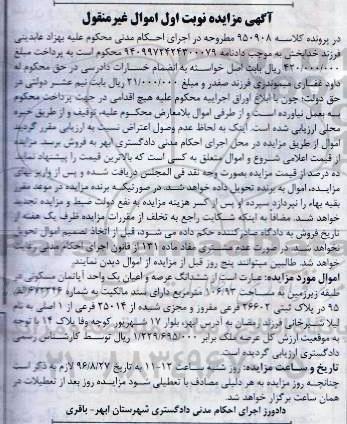 آگهی مزایده نوبت اول اموال غیرمنقول
در پرونده کلاسه ۹۵۰۹۰۸ مطروحه در اجرای احکام مدنی محکوم علیه بهزاد عابدینی
فرزند خدابخش به موجب دادنامه ۹۴۰۹۹۷۲۴۲۴۳۰۰۰۷۹ محکوم است به پرداخت مبلغ
۴۲۰/۰۰۰/۰۰۰ ریال بابت اصل خواسته به انضمام خسارات دادرسی در حق محکوم له
داود غفاری میموندری فرزند صفدر و مبلغ ۲۱/۰۰۰/۰۰۰ ریال بابت نیم عشر دولتی در
حق دولت؛ چون با ابلاغ اوراق اجراییه محکوم علیه هیچ اقدامی در جهت پرداخت محکوم
به بعمل نیاورده است و از طرفی اموال بلامعارض محکوم علیه، توقیف و از طریق خبره
محلی ارزیابی شده است. اینک به لحاظ عدم وصول اعتراض نسبت به ارزیابی مقرر گردید
اموال از طریق مزایده در محل اجرای احکام مدنی دادگستری ابهر به فروش برسد. مزایده
از قیمت اعلامی شروع و اموال متعلق به کسی است که بالاترین قیمت را پیشنهاد نماید.
ده درصد از قیمت مزایده بصورت وجه نقد فی المجلس دریافت شده و پس از واریز بهای
مزایده، اموال به برنده تحویل داده خواهد شد. در صورتیکه برنده مزایده در موعد مقرر
بقیه بهاء را نپردازد سپرده او پس از کسر هزینه مزایده به نفع دولت ضبط و مزایده تجدید
خواهد شد. مضافا به اینکه شکایت راجع به تخلف از مقررات مزایده ظرف یک هفته از
تاریخ فروش به دادگاه صادرکننده حکم داده می شود، قبل از اتخاذ تصمیم اموال تحویل
نخواهد شد. در صورت عدم مفاد ماده ۱۳۱ از قانون اجرای احکام مدنی رعایت
خواهد شد. طالبین میتوانند پنج روز قبل از مزایده از اموال دیدن نمایند.
اموال مورد مزایده: عبارت است از: ششدانگ عرصه و اعیان یک واحد آپارتمان مسکونی در
طبقه زیرزمین به مساحت ۱۰۶/۹۳ مترمربع دارای سند مالکیت به شماره ۶۷۲۲۴۶ الف
۹۵ در پلاک ثبتی ۲۶۶۰۲ فرعی مفروز و مجزی شده از ۲۵۰۱۴ فرعی از ۱ اصلی به نام
لیلا شیرخانی فرزند رمضان به آدرس ابهر، بلوار ۱۷ شهریور، کوچه وفا پلاک ۱۴ با توجه
به موقعیت ارزش کل عرصه ملک برابر ۱/۲۲۹/۶۹۵/۰۰۰ ریال توسط کارشناس رسمی
دادگستری ارزیابی گردیده است.
تاریخ و ساعت مزایده: روز شنبه ساعت ۱۲-۱۱ به تاریخ ۹۶/۸/۲۷ لازم به ذکر است
چنانچه روز مزایده به هر دلیلی مصادف با تعطیلی شود مزایده روز بعد از تعطیلات در
همان ساعت برگزار خواهد شد.
دادورز اجرای احکام مدنی دادگستری شهرستان ابهر- باقری